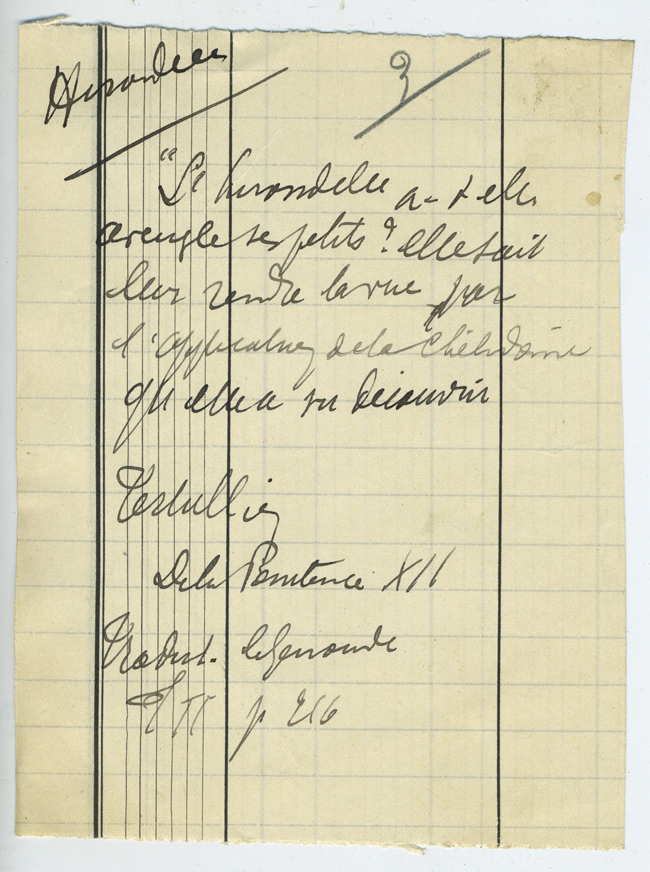 Hirondelle
3
"L'hirondelle a-t-elle
aveuglé ses petits ? elle sait
leur rendre la vue par
l'application de la Chélidoine
qu'elle a su découvrir
Tertullien
De la Pénitence XII
Traduct. de Genoude
T II p 216